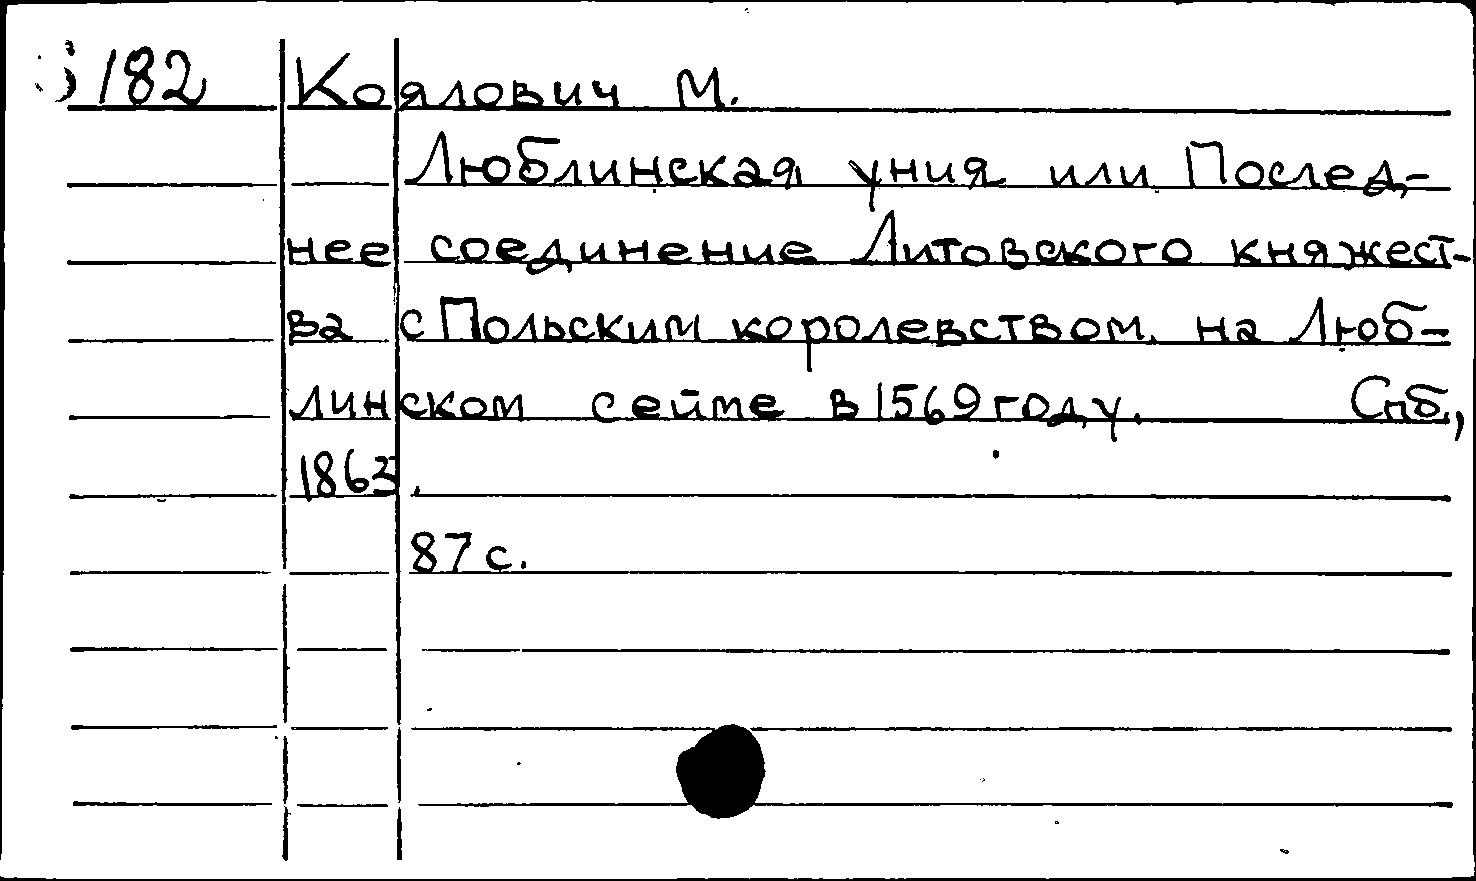 182 Коялович М.
Люблинская уния или Послед-
нее соединение Литовского княжест-
ва с Польским королевством на Люб-
линском сейме в 1569 году. Спб.,
1863.
87 с.